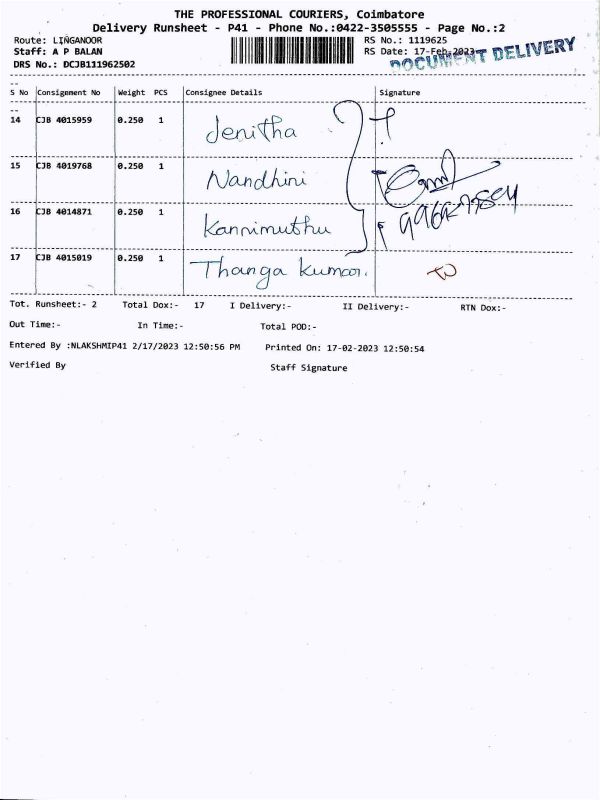 THE PROFESSIONAL COURIERS, Coimbatore
Delivery Runsheet - P41 - Phone No.:0422-3505555 - Page No.:2
Route: LINGANOOR
Staff: A P BALAN
DRS No.: DCJB111962502
RS No.: 1119625
RS Date: 17-Feb-2023
DOCUMENT DELIVERY
S No Consignment No Weight PCS Consignee Details Signature
14 CJB 4015959 0.250 1 Jenitha
15 CJB 4019768 0.250 1 Nandhini
16 CJB 4014871 0.250 1 Kannimuthu
17 CJB 4015019 0.250 1 Thanga Kumar.
Tot. Runsheet:- 2 Total Dox:- 17 I Delivery:- II Delivery:- RTN Dox:-
Out Time:- In Time:- Total POD:-
Entered By :NLAKSHMIP41 2/17/2023 12:50:56 PM Printed On: 17-02-2023 12:50:54
Verified By Staff Signature